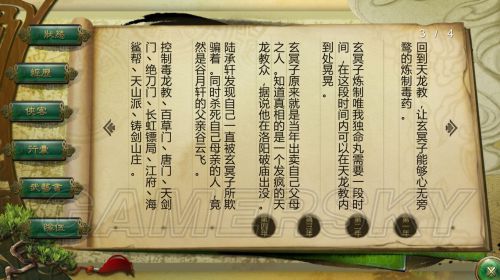 3 / 4
回到天龙教，让玄冥子能够心无旁
鹜的炼制毒药。
玄冥子炼制唯我独命丸需要一段时
间，在这段时间内可以在天龙教内
到处晃晃。
玄冥子原来就是当年出卖自己父母
之人。知道真相的是一个发疯的天
龙教众，据说他在洛阳破庙出没。
陆承轩发现自己一直被玄冥子所欺
骗着。同时杀死自己母亲的人，竟
然是谷月轩的父亲谷云飞。
控制毒龙教、百草门、唐门、天剑
门、绝刀门、长虹镖局、江府、海
鲨帮、天山派、铸剑山庄。
狀態
經歷
俠客
行囊
武藝書
GAMERSKY